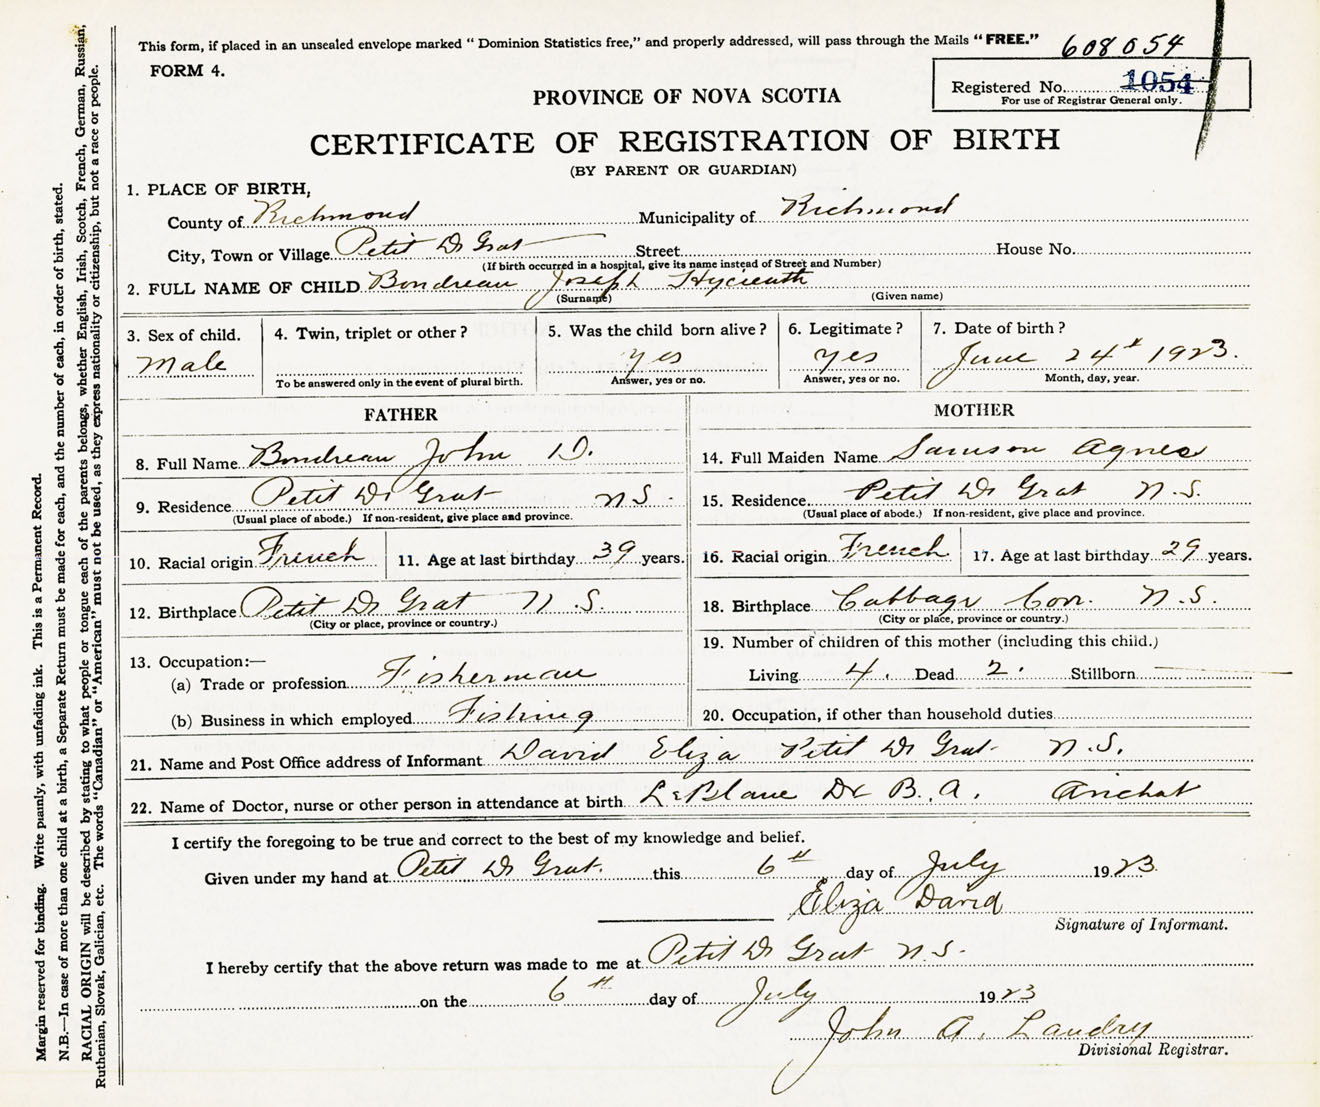 This form, if placed in an unsealed envelope marked “ Dominion Statistics free,” and properly addressed, will pass through the Mails “ FREE.”
608054
FORM 4.
Registered No. 1054
For use of Registrar General only.
PROVINCE OF NOVA SCOTIA
CERTIFICATE OF REGISTRATION OF BIRTH
(BY PARENT OR GUARDIAN)
1. PLACE OF BIRTH,
County of Richmond Municipality of Richmond
City, Town or Village Petit De Grat Street House No.
(If birth occurred in a hospital, give its name instead of Street and Number)
2. FULL NAME OF CHILD Boudreau Joseph Hycienth
(Surname) (Given name)
3. Sex of child. 4. Twin, triplet or other ? 5. Was the child born alive ? 6. Legitimate ? 7. Date of birth ?
Male yes yes June 24th 1923.
To be answered only in the event of plural birth. Answer, yes or no. Answer, yes or no. Month, day, year.
FATHER MOTHER
8. Full Name Boudreau John D. 14. Full Maiden Name Samson Agnes
9. Residence Petit De Grat N.S. 15. Residence Petit De Grat N.S.
(Usual place of abode.) If non-resident, give place and province. (Usual place of abode.) If non-resident, give place and province.
10. Racial origin French 11. Age at last birthday 39 years. 16. Racial origin French 17. Age at last birthday 29 years.
12. Birthplace Petit De Grat N.S. 18. Birthplace Cabbage Cov. N.S.
(City or place, province or country.) (City or place, province or country.)
13. Occupation:— 19. Number of children of this mother (including this child.)
(a) Trade or profession Fisherman Living 4. Dead 2. Stillborn
(b) Business in which employed Fishing 20. Occupation, if other than household duties
21. Name and Post Office address of Informant David Eliza Petit De Grat N.S.
22. Name of Doctor, nurse or other person in attendance at birth LeBlanc Dr B.A. Arichat
I certify the foregoing to be true and correct to the best of my knowledge and belief.
Given under my hand at Petit De Grat. this 6th day of July 1923.
Eliza David
Signature of Informant.
I hereby certify that the above return was made to me at Petit De Grat N.S.
on the 6th day of July 1923
John A. Landry
Divisional Registrar.
Margin reserved for binding. Write plainly, with unfading ink. This is a Permanent Record.
N.B.—In case of more than one child at a birth, a Separate Return must be made for each, and the number of each, in order of birth, stated.
RACIAL ORIGIN will be described by stating to what people or tongue each of the parents belongs, whether English, Irish, Scotch, French, German, Russian,
Ruthenian, Slovak, Galician, etc. The words “Canadian” or “American” must not be used, as they express nationality or citizenship, but not a race or people.